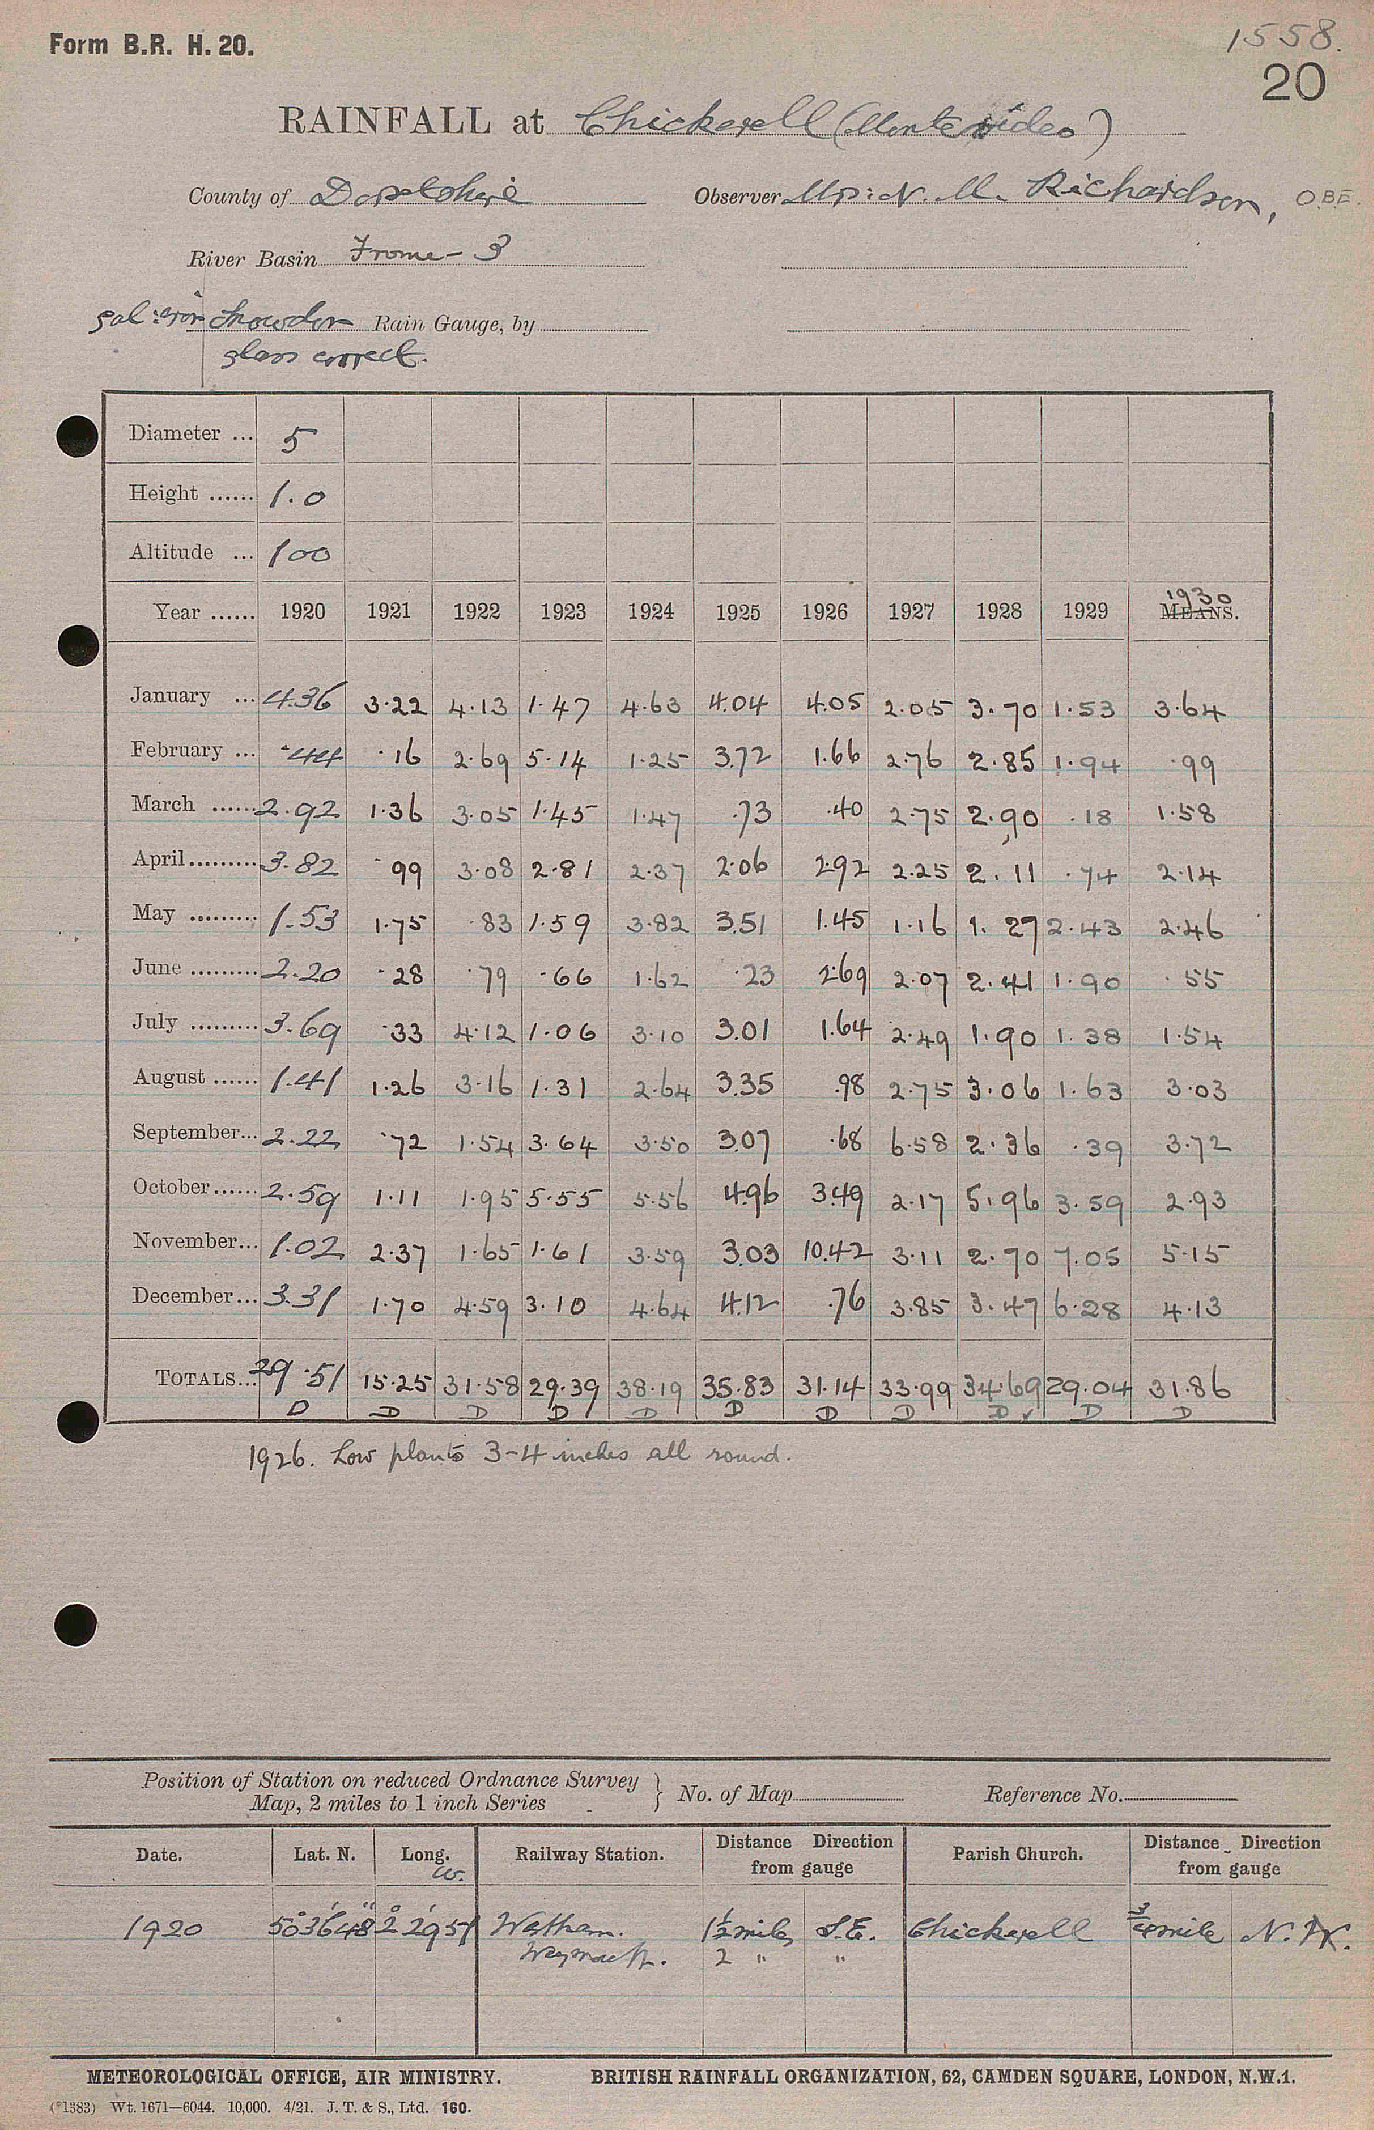 Form B.R. H. 20.
1558.
20
RAINFALL at Chickerell (Montevideo)
County of Dorsetshire Observer Mr: N. M. Richardson, O.B.E.
River Basin Frome - 3
gal: iron Snowdon Rain Gauge, by
glass correct.
Diameter ... 5
Height ...... 1.0
Altitude ... 100
Year ...... 1920 1921 1922 1923 1924 1925 1926 1927 1928 1929 1930 MEANS.
January ... 4.36 3.22 4.13 1.47 4.63 4.04 4.05 2.05 3.70 1.53 3.64
February ... .44 .16 2.69 5.14 1.25 3.72 1.66 2.76 2.85 1.94 .99
March ...... 2.92 1.36 3.05 1.45 1.47 .73 .40 2.75 2.90 .18 1.58
April ......... 3.82 .99 3.08 2.81 2.37 2.06 2.92 2.25 2.11 .74 2.14
May ......... 1.53 1.75 .83 1.59 3.82 3.51 1.45 1.16 1.27 2.43 2.46
June ......... 2.20 .28 .79 .66 1.62 .23 2.69 2.07 2.41 1.90 .55
July ......... 3.69 .33 4.12 1.06 3.10 3.01 1.64 2.49 1.90 1.38 1.54
August ...... 1.41 1.26 3.16 1.31 2.64 3.35 .98 2.75 3.06 1.63 3.03
September... 2.22 .72 1.54 3.64 3.50 3.07 .68 6.58 2.36 .39 3.72
October...... 2.59 1.11 1.95 5.55 5.56 4.96 3.49 2.17 5.96 3.59 2.93
November... 1.02 2.37 1.65 1.61 3.59 3.03 10.42 3.11 2.70 7.05 5.15
December... 3.31 1.70 4.59 3.10 4.64 4.12 .76 3.85 3.47 6.28 4.13
TOTALS... 29.51 15.25 31.58 29.39 38.19 35.83 31.14 33.99 34.69 29.04 31.86
D D D D D D D D D ✓ D D
1926. Low plants 3-4 inches all round.
Position of Station on reduced Ordnance Survey
Map, 2 miles to 1 inch Series } No. of Map Reference No.
Date. Lat. N. Long. W. Railway Station. Distance Direction from gauge Parish Church. Distance Direction from gauge
1920 50° 36' 48" 2° 29 51 1½ miles S.E. Chickerell ¾ mile N.W.
Weymouth. 2 " "
METEOROLOGICAL OFFICE, AIR MINISTRY. BRITISH RAINFALL ORGANIZATION, 62, CAMDEN SQUARE, LONDON, N.W.1.
(*1383) Wt. 1671—6044. 10,000. 4/21. J. T. & S., Ltd. 160.